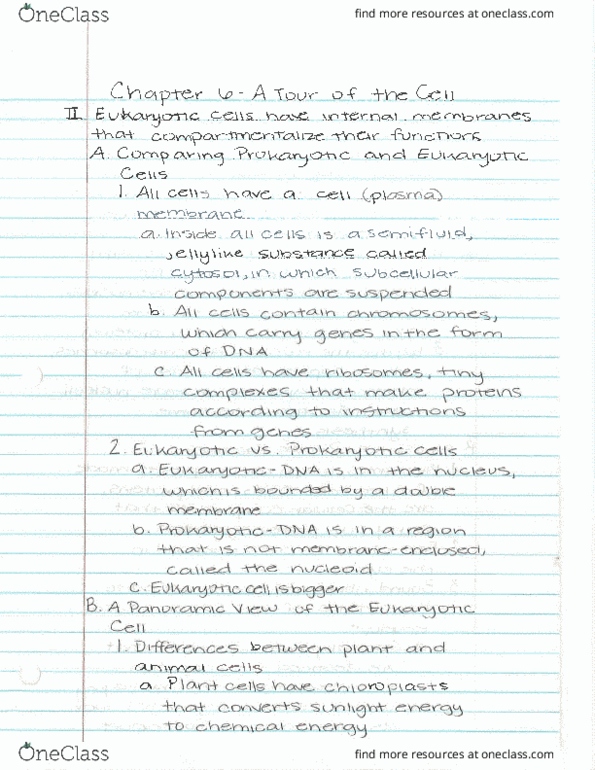 OneClass
find more resources at oneclass.com
Chapter 6 - A Tour of the Cell
II. Eukaryotic cells have internal membranes
that compartmentalize their functions
A. Comparing Prokaryotic and Eukaryotic
Cells
1. All cells have a cell (plasma)
membrane
a. Inside all cells is a semifluid,
jellyline substance called
cytosol, in which subcellular
components are suspended
b. All cells contain chromosomes,
which carry genes in the form
of DNA
c. All cells have ribosomes, tiny
complexes that make proteins
according to instructions
from genes
2. Eukaryotic vs. Prokaryotic cells
a. Eukaryotic - DNA is in the nucleus,
which is bounded by a double
membrane
b. Prokaryotic - DNA is in a region
that is not membrane-enclosed,
called the nucleoid
c. Eukaryotic cell is bigger
B. A Panoramic View of the Eukaryotic
Cell
1. Differences between plant and
animal cells
a. Plant cells have chloroplasts
that converts sunlight energy
to chemical energy
OneClass
find more resources at oneclass.com